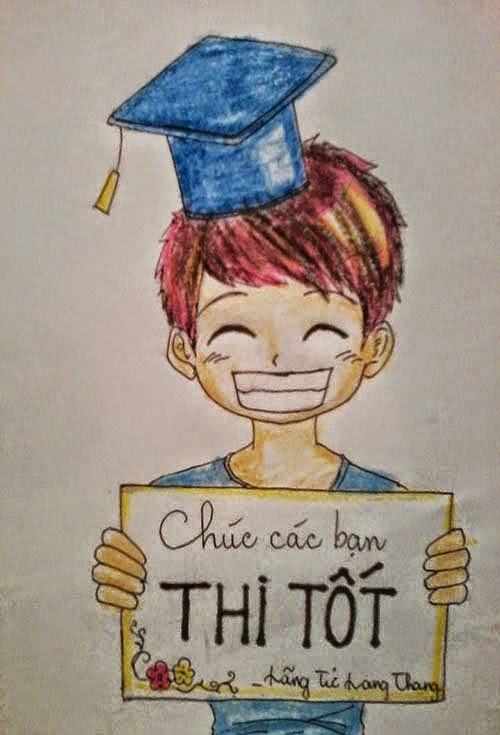 Chúc các bạn
THI TỐT
- Lãng Tử Lang Thang